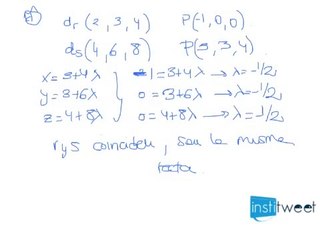 dr (2, 3, 4) P(-1, 0, 0)
ds (4, 6, 8) P(3, 3, 4)
x = 3+4λ -1 = 3+4λ → λ = -1/2
y = 3+6λ 0 = 3+6λ → λ = -1/2
z = 4+8λ 0 = 4+8λ → λ = -1/2
r y s coinciden, son la misma
recta
institweet